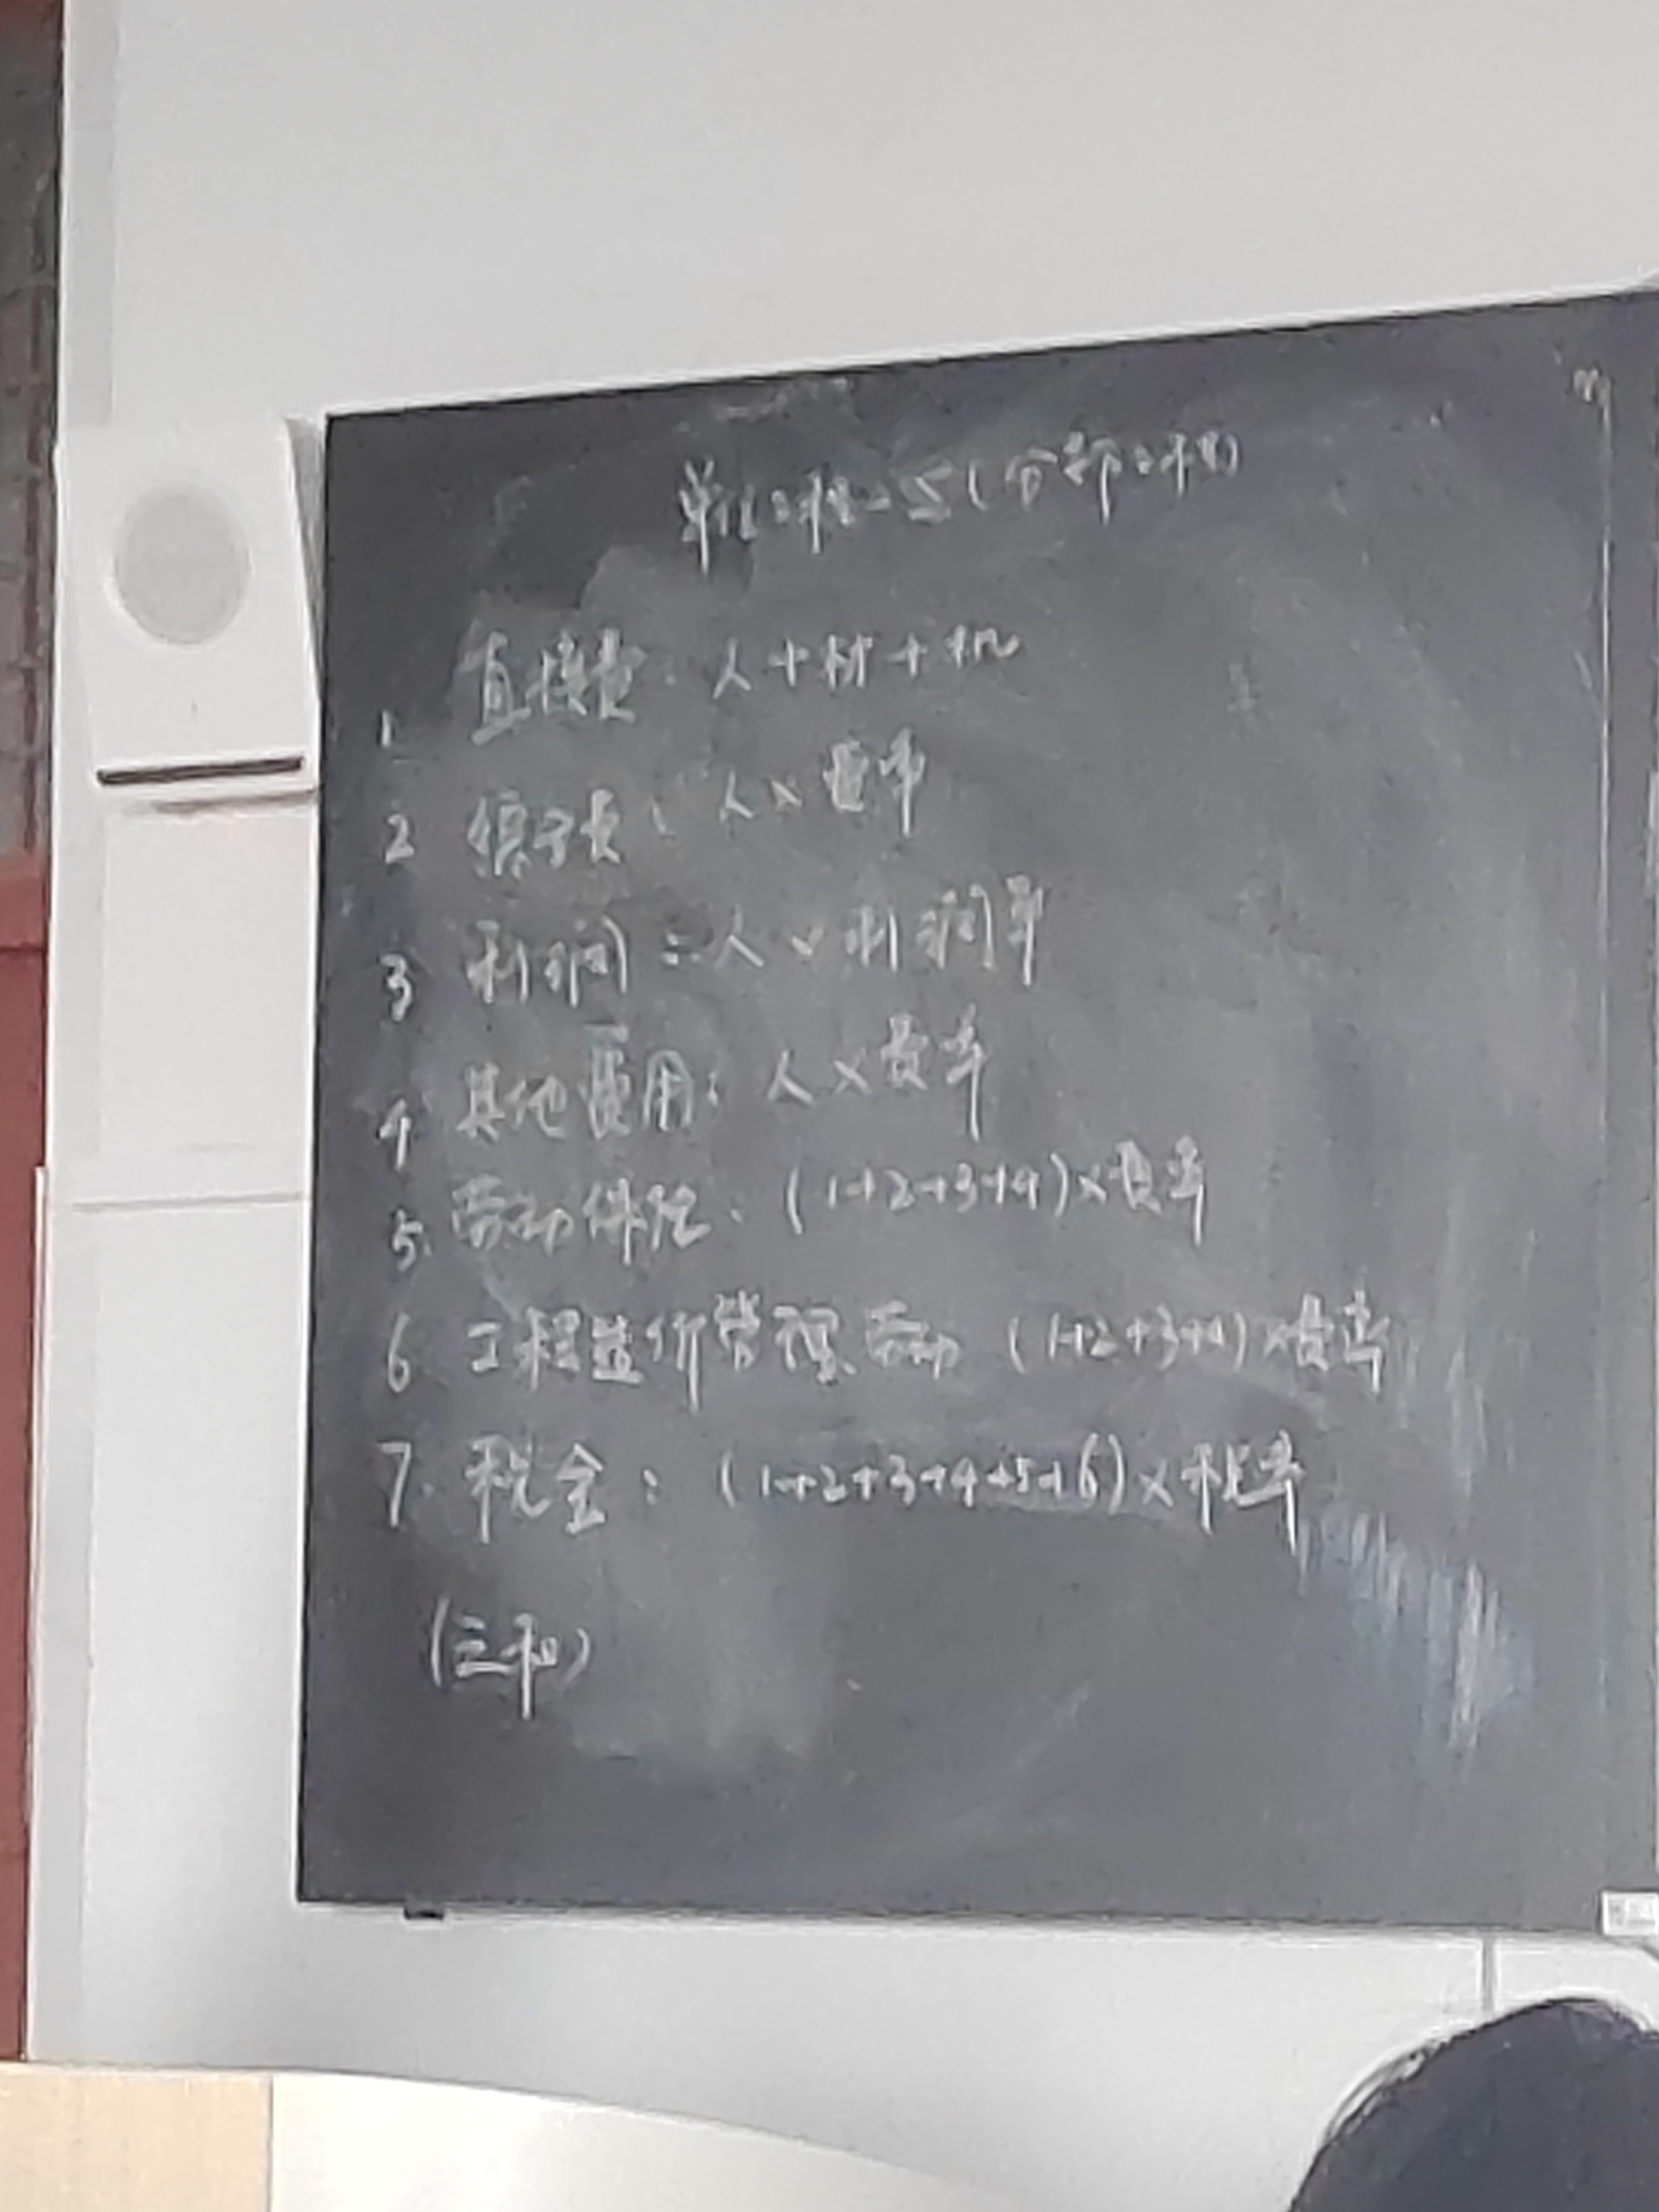 单位工程=Σ(分部工程)
1. 直接费：人+材+机
2 综合费：人×费率
3 利润：人×利润率
4 其他费用：人×费率
5. 劳动保险：(1+2+3+4)×费率
6 工程造价管理、劳动 (1+2+3+4)×费率
7. 税金：(1+2+3+4+5+6)×税率